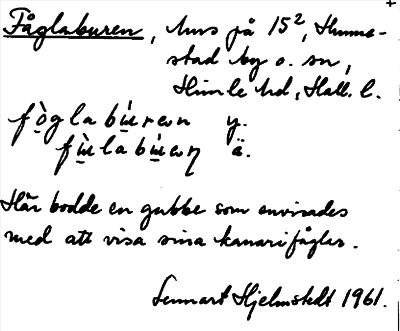 Fåglaburen, hus på 15², Hunne-
stad by o. sn,
Himle hd, Hall. l.
fò̲glabù̲rən y.
fù̲labù̲əɳ ä.
Här bodde en gubbe som envisades
med att visa sina kanarifåglar.
Lennart Hjelmstedt 1961.